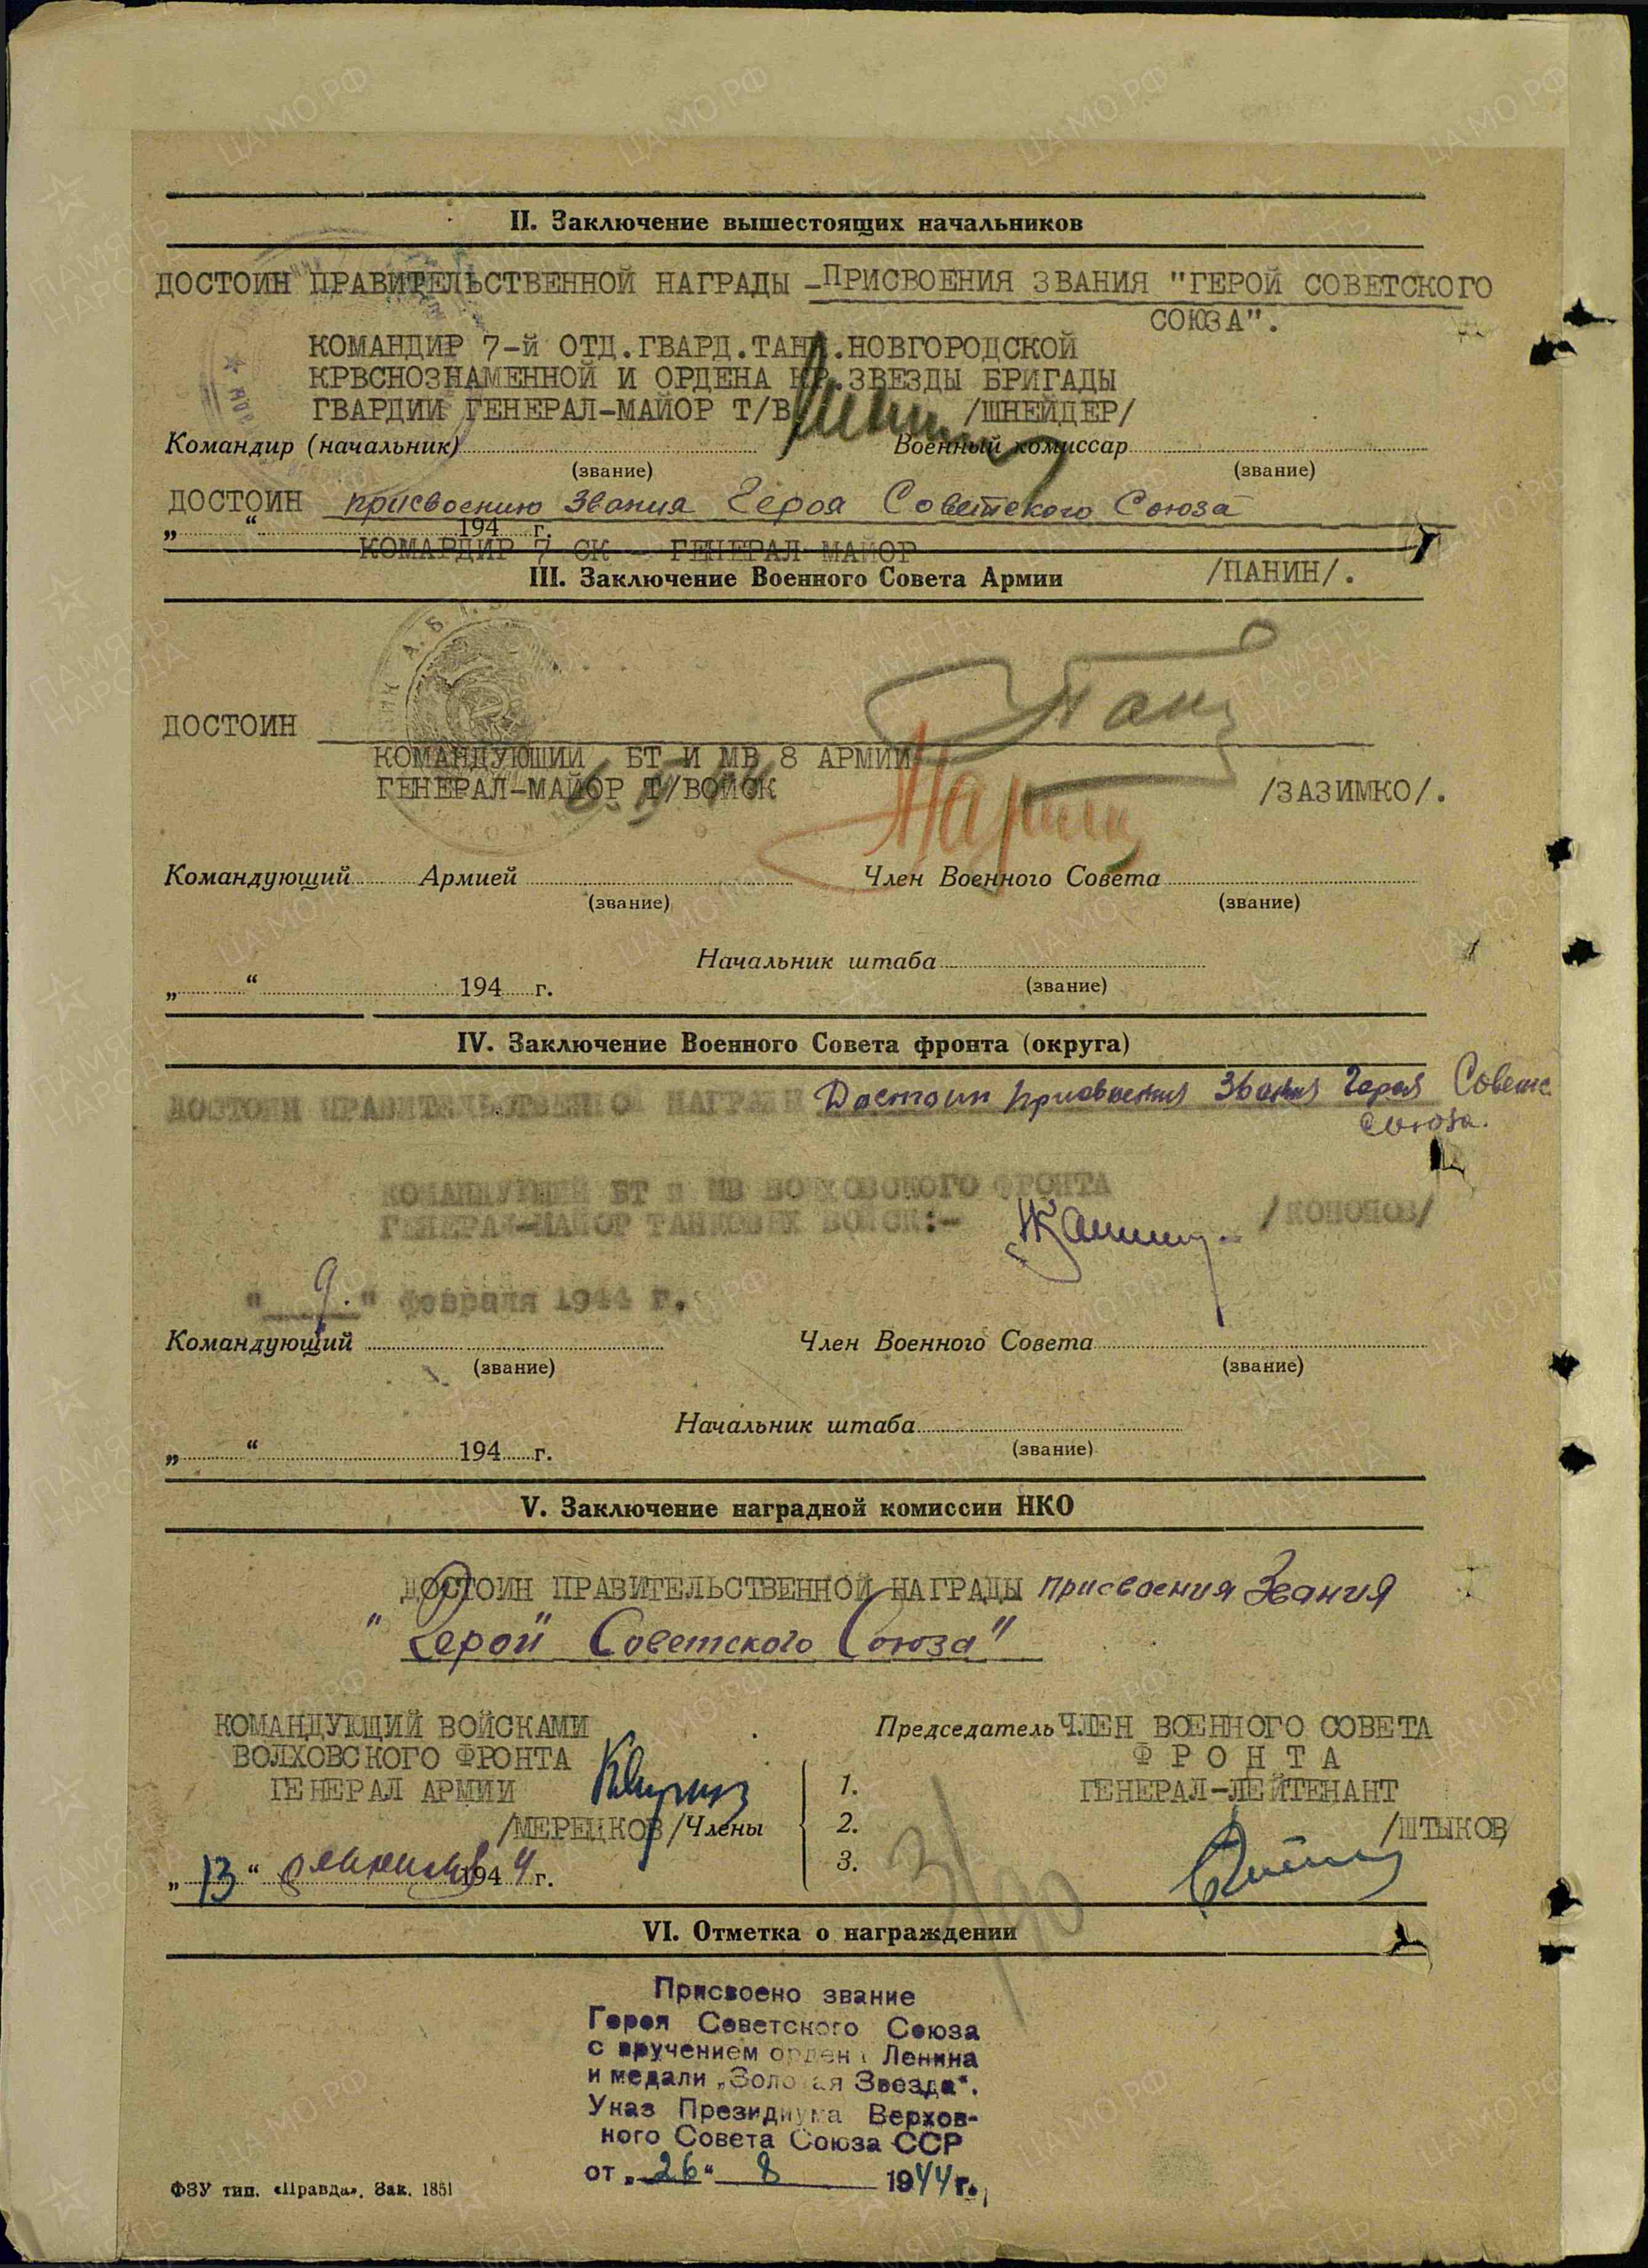 II. Заключение вышестоящих начальников
ДОСТОИН ПРАВИТЕЛЬСТВЕННОЙ НАГРАДЫ -ПРИСВОЕНИЯ ЗВАНИЯ "ГЕРОЙ СОВЕТСКОГО
СОЮЗА".
КОМАНДИР 7-й ОТД.ГВАРД.ТАНК.НОВГОРОДСКОЙ
КРВСНОЗНАМЕННОЙ И ОРДЕНА КР.ЗВЕЗДЫ БРИГАДЫ
ГВАРДИИ ГЕНЕРАЛ-МАЙОР Т/В /ШНЕЙДЕР/
Командир (начальник) Военный комиссар
(звание) (звание)
ДОСТОИН присвоению звания Героя Советского Союза
„ “ 194 г.
КОМАРДИР 7 СК - ГЕНЕРАЛ МАЙОР
III. Заключение Военного Совета Армии /ПАНИН/.
ДОСТОИН
КОМАНДУЮЩИЙ БТ И МВ 8 АРМИИ
ГЕНЕРАЛ-МАЙОР Т/ВОЙСК /ЗАЗИМКО/.
Командующий Армией Член Военного Совета
(звание) (звание)
Начальник штаба
„ “ 194 г. (звание)
IV. Заключение Военного Совета фронта (округа)
ДОСТОИН ПРАВИТЕЛЬСТВЕННОЙ НАГРАДЫ Достоин присвоения звания Героя Советс.
Союза.
КОМАНДУЮЩИЙ БТ и МВ ВОЛХОВСКОГО ФРОНТА
ГЕНЕРАЛ-МАЙОР ТАНКОВЫХ ВОЙСК:- /КОНОНОВ/
" 9. " февраля 1944 г.
Командующий Член Военного Совета
(звание) (звание)
Начальник штаба
„ “ 194 г. (звание)
V. Заключение наградной комиссии НКО
ДОСТОИН ПРАВИТЕЛЬСТВЕННОЙ НАГРАДЫ присвоения Звания
"Герой Советского Союза"
КОМАНДУЮЩИЙ ВОЙСКАМИ Председатель ЧЛЕН ВОЕННОГО СОВЕТА
ВОЛХОВСКОГО ФРОНТА ФРОНТА
ГЕНЕРАЛ АРМИИ 1. ГЕНЕРАЛ-ЛЕЙТЕНАНТ
/МЕРЕЦКОВ/ Члены 2. /ШТЫКОВ/
3.
„13“ 1944 г.
3/90
VI. Отметка о награждении
Присвоено звание
Героя Советского Союза
с вручением ордена Ленина
и медали „Золотая Звезда“.
Указ Президиума Верхов-
ного Совета Союза ССР
от „26“ 8 1944г.
ФЗУ тип. «Правда». Зак. 1851